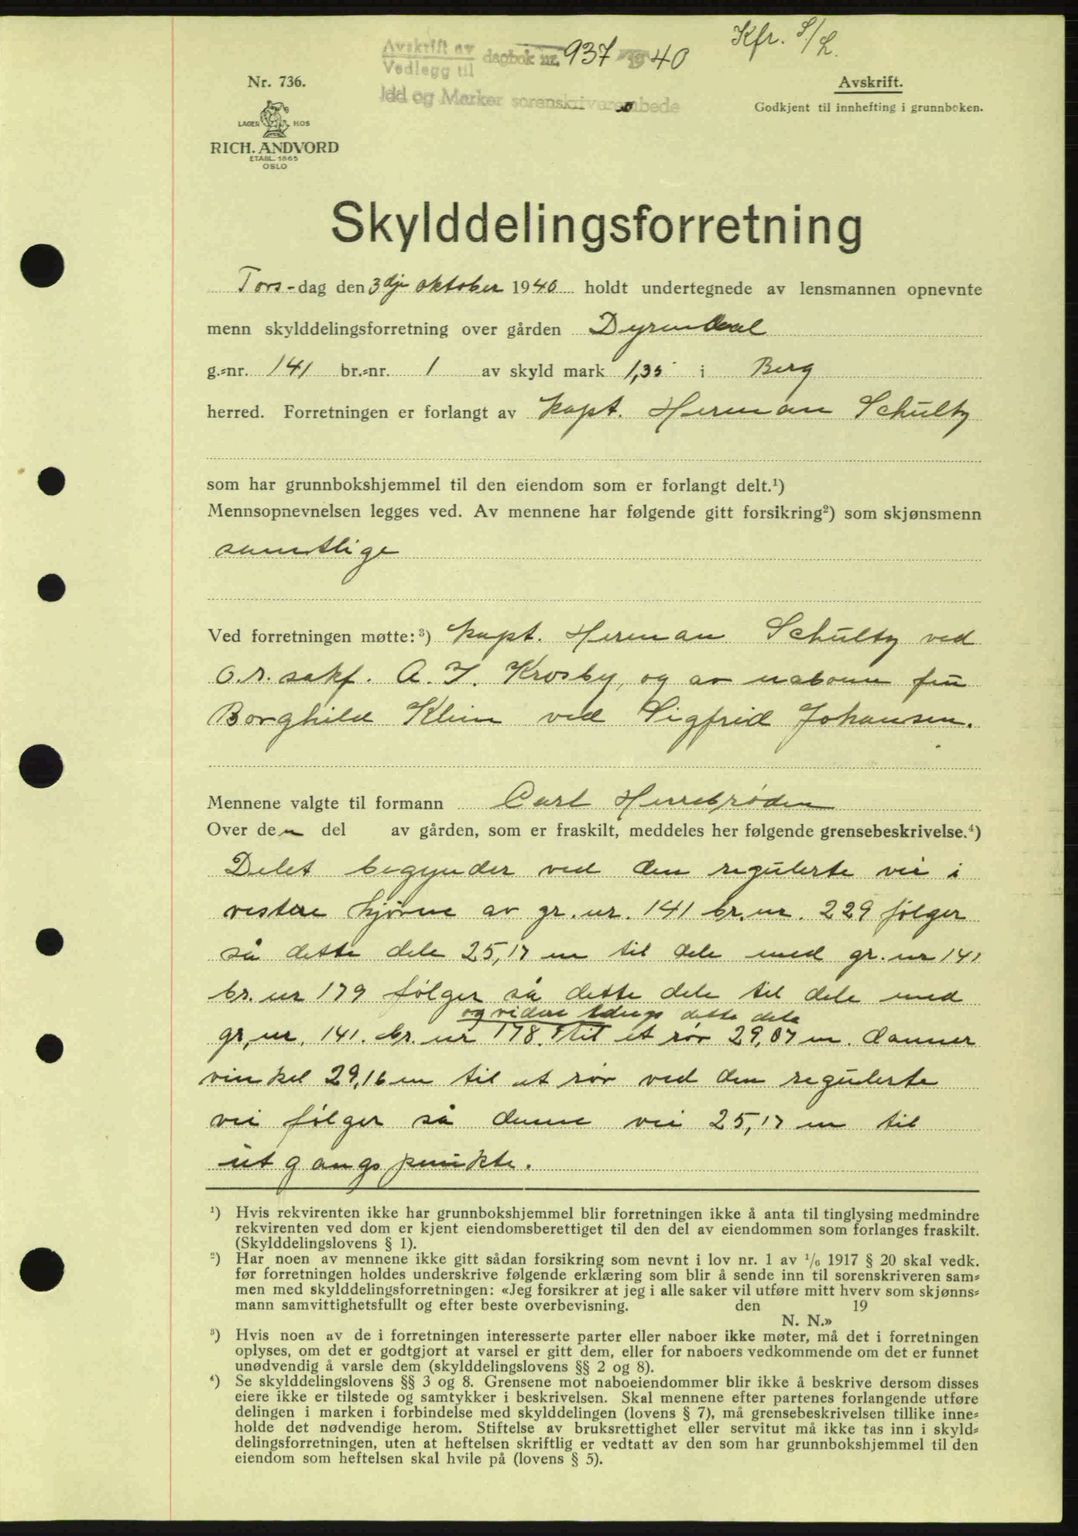 Kfr. S/L.
Avskrift av dagbok nr. 937 1940
Vedlegg til
Idd og Marker sorenskriverembede
Nr. 736.
LAGER HOS
RICH. ANDVORD
ETABL. 1865
OSLO
Avskrift.
Godkjent til innhefting i grunnboken.
Skylddelingsforretning
Tors-dag den 3dje oktober 1940 holdt undertegnede av lensmannen opnevnte
menn skylddelingsforretning over gården Dyrendal
g.=nr. 141 br.=nr. 1 av skyld mark 1,35 i Berg
herred. Forretningen er forlangt av kapt. Herman Schultz
som har grunnbokshjemmel til den eiendom som er forlangt delt.¹)
Mennsopnevnelsen legges ved. Av mennene har følgende gitt forsikring²) som skjønsmenn
samtlige
Ved forretningen møtte:³) kapt. Herman Schultz ved
o.r.sakf. A. T. Krosby, og av naboene frü
Borghild Klein ved Sigfrid Johansen.
Mennene valgte til formann Carl Herrebrøden
Over den del av gården, som er fraskilt, meddeles her følgende grensebeskrivelse.⁴)
Delet begynder ved den regulerte vei i
vestere hjørne av gr. nr. 141 br. nr. 229 følger
så dette dele 25,17 m til dele med gr. nr 141
br. nr 179 følger så dette dele til dele med
og videre dette dele
gr, nr. 141. br. nr 178. til et rør 29,07 m. danner
vinkel 29,16 m til et rør ved den regulerte
vei følger så denne vei 25,17 m til
utgangspunkte.
¹) Hvis rekvirenten ikke har grunnbokshjemmel blir forretningen ikke å anta til tinglysing medmindre
rekvirenten ved dom er kjent eiendomsberettiget til den del av eiendommen som forlanges fraskilt.
(Skylddelingslovens § 1).
²) Har noen av mennene ikke gitt sådan forsikring som nevnt i lov nr. 1 av 1/6 1917 § 20 skal vedk.
før forretningen holdes underskrive følgende erklæring som blir å sende inn til sorenskriveren sam=
men med skylddelingsforretningen: «Jeg forsikrer at jeg i alle saker vil utføre mitt hverv som skjønns=
mann samvittighetsfullt og efter beste overbevisning. den 19
N. N.»
³) Hvis noen av de i forretningen interesserte parter eller naboer ikke møter, må det i forretningen
oplyses, om det er godtgjort at varsel er gitt dem, eller for naboers vedkommende om det er funnet
unødvendig å varsle dem (skylddelingslovens §§ 2 og 8).
⁴) Se skylddelingslovens §§ 3 og 8. Grensene mot naboeiendommer blir ikke å beskrive dersom disses
eiere ikke er tilstede og samtykker i beskrivelsen. Skal mennene efter partenes forlangende utføre
delingen i marken i forbindelse med skylddelingen (lovens § 7), må grensebeskrivelsen tillike inne=
holde det nødvendige herom. Stiftelse av bruksrettighet eller servitut må ikke tas inn i skyld=
delingsforretningen, uten at heftelsen skriftlig er vedtatt av den som har grunnbokshjemmel til den
eiendom som heftelsen skal hvile på (lovens § 5).